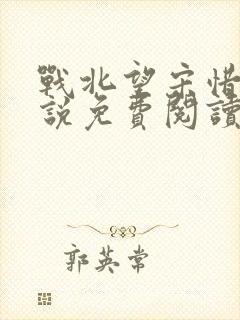 戰北望宋惜
說免費閱讀
郭英常